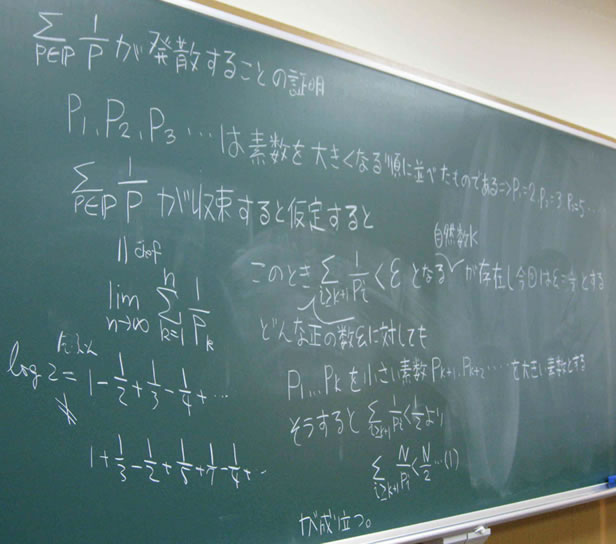 Σ_{P∈ℙ} 1/P が発散することの証明
P₁, P₂, P₃ … は素数を大きくなる順に並べたものである => P₁=2, P₂=3, P₃=5…
Σ_{P∈ℙ} 1/P が収束すると仮定すると
|| def
lim_{n→∞} Σ_{k=1}^{n} 1/P_k
自然数k
このとき Σ_{i≥k+1} 1/P_i < ε となる が存在し今回はε=1/2とする
どんな正の数εに対しても
P₁…P_kを小さい素数 P_{k+1}, P_{k+2}……を大きい素数とする
そうすると Σ_{i≥k+1} 1/P_i < 1/2 より
Σ_{i≥k+1} N/P_i < N/2 …(1)
が成立つ。
log 2 = 1 - 1/2 + 1/3 - 1/4 + …
1 + 1/3 - 1/2 + 1/5 + 1/7 - 1/4 + …